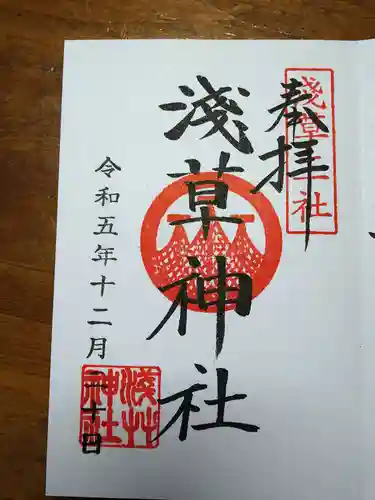 奉拝
淺草三社
淺草神社
令和五年十二月二十日
淺草神社